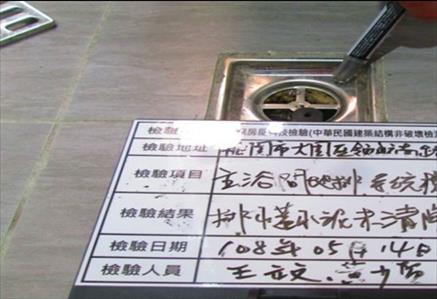 檢驗 房屋 檢驗(中華民國建築結構非破壞檢
檢驗地址 桃園市大園區領航
檢驗項目 主浴間地排系統檢
檢驗結果 排水蓋水泥未清
檢驗日期 108年05月14日
檢驗人員 王